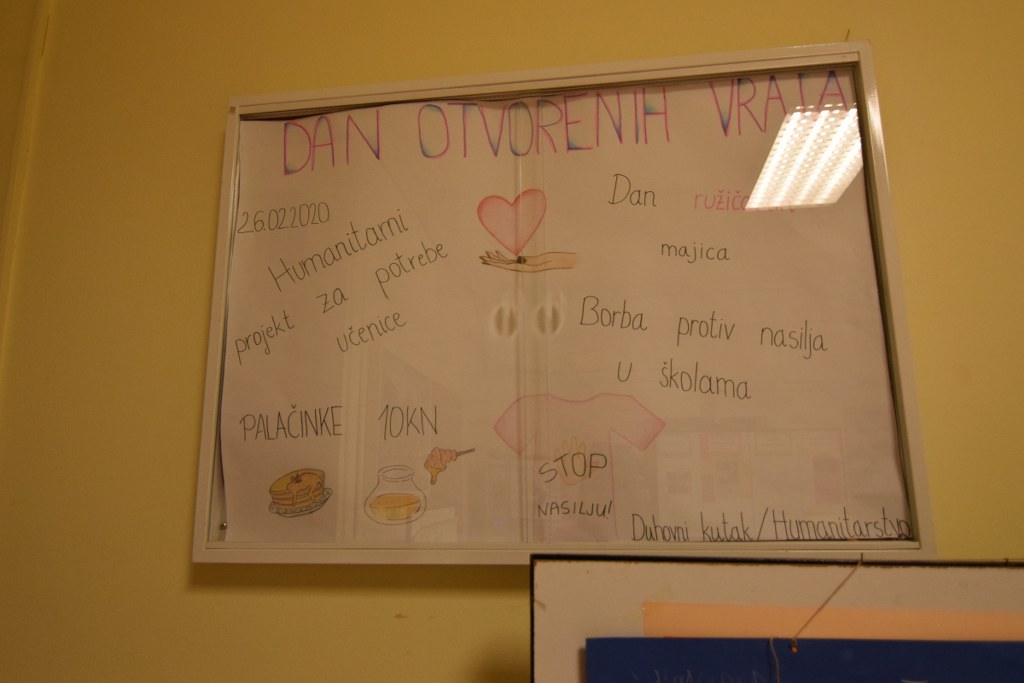 DAN OTVORENIH VRATA
26.02.2020
Humanitarni
projekt za potrebe
učenice
PALAČINKE 10KN
Dan
majica
Borba protiv nasilja
u školama
STOP
NASILJU!
Duhovni kutak/Humanitarstvo